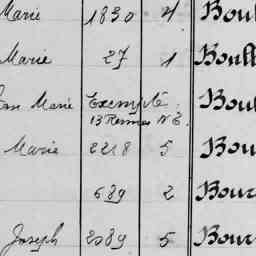 Marie 1830 4 Boul
Marie 27 1 Boull
an Marie Exempté Bou
13 Rennes N.E.
Marie 2218 5 Bou
689 2 Bour
Joseph 2089 5 Bour